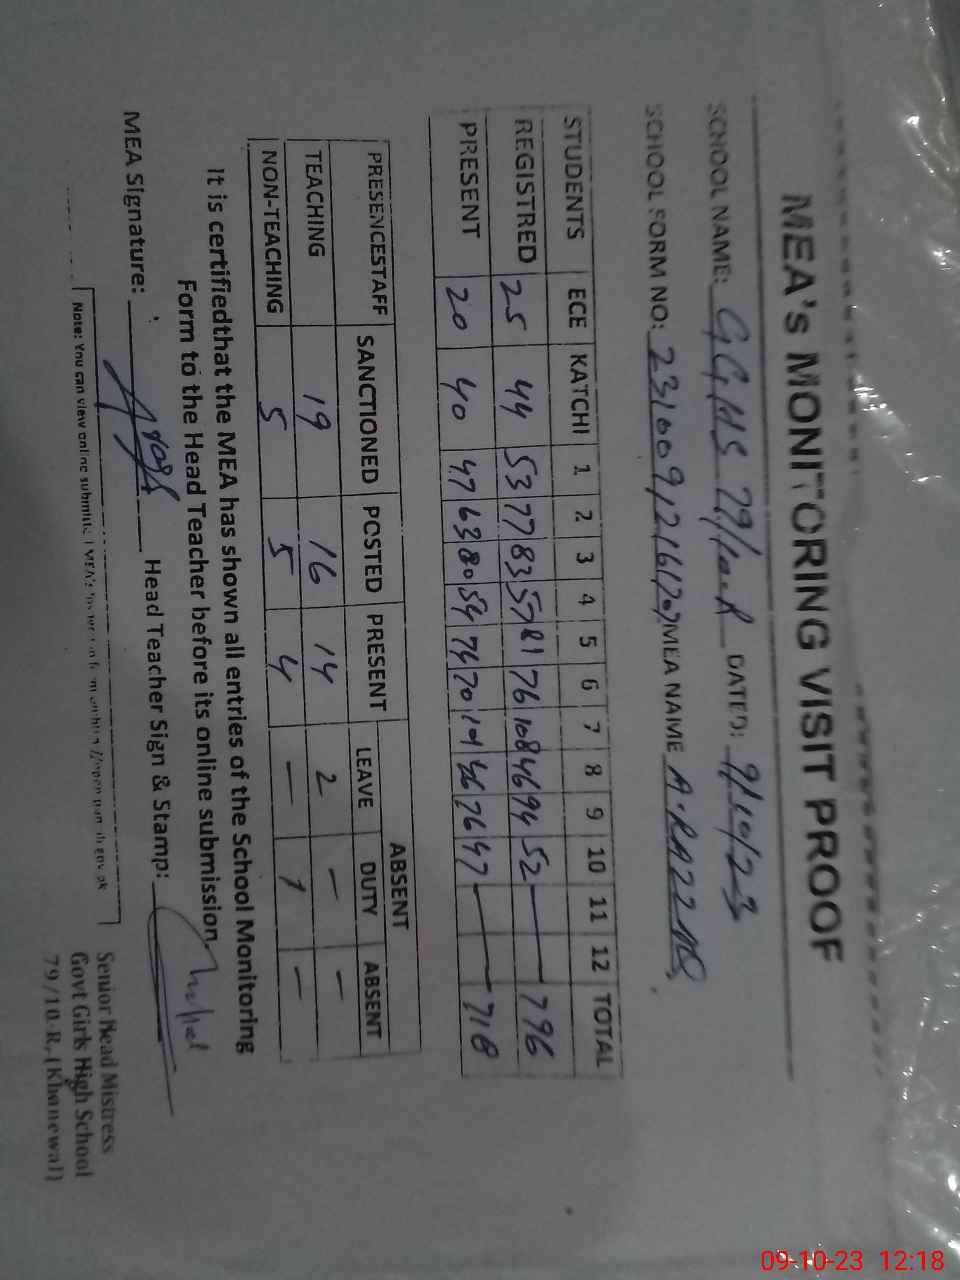 MEA's MONITORING VISIT PROOF
SCHOOL NAME: GGHS 79/10-R DATED: 9/10/23
SCHOOL FORM NO: MEA NAME
STUDENTS ECE KATCHI 1 2 3 4 5 6 7 8 9 10 11 12 TOTAL
REGISTRED 25 44 53 77 83 57 81 76 108 46 94 52 — 796
PRESENT 20 40 47 63 80 54 74 70 101 46 76 47 — 718
ABSENT
PRESENCESTAFF SANCTIONED POSTED PRESENT LEAVE DUTY ABSENT
TEACHING 19 16 14 2 — —
NON-TEACHING 5 5 4 — 1 —
It is certifiedthat the MEA has shown all entries of the School Monitoring
Form to the Head Teacher before its online submission
MEA Signature: Head Teacher Sign & Stamp:
Note: You can view online
Senior Head Mistress
Govt Girls High School
79/10-R, (Khanewal)
09-10-23 12:18